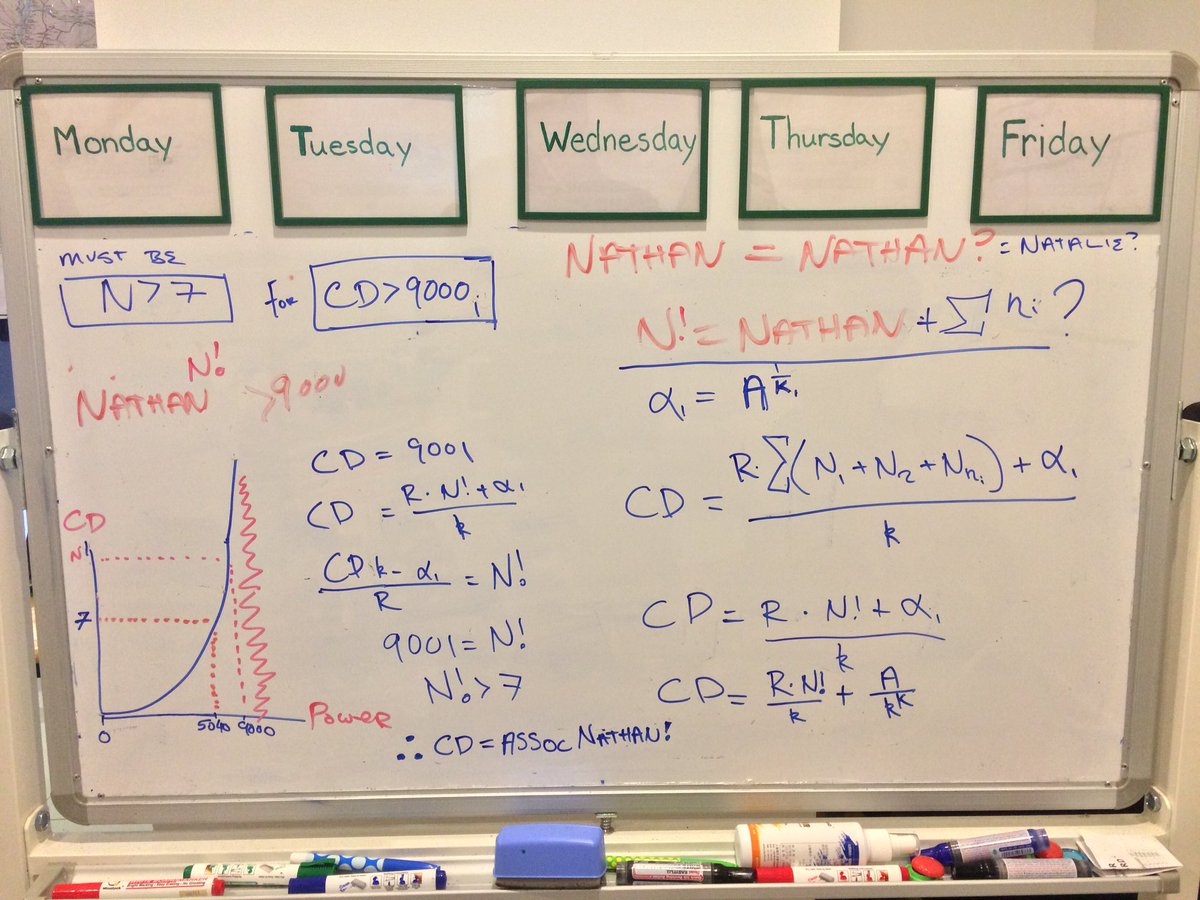 Monday
Tuesday
Wednesday
Thursday
Friday
MUST BE
N>7 for CD>9000i
N!
NATHAN >9000
CD
N!
7
0
5040 9000
POWER
CD = 9001
CD = R· N! + α₁ / k
CD k - α₁ / R = N!
9001 = N!
N! > 7
∴ CD = ASSOC NATHAN!
NATHAN = NATHAN? = NATALIE?
N! = NATHAN + Σ ni?
α₁ = A^(1/k₁)
CD = R· Σ(N₁ + N₂ + Nni) + α₁ / k
CD = R · N! + α₁ / k
CD = R·N! / k + A / k^k